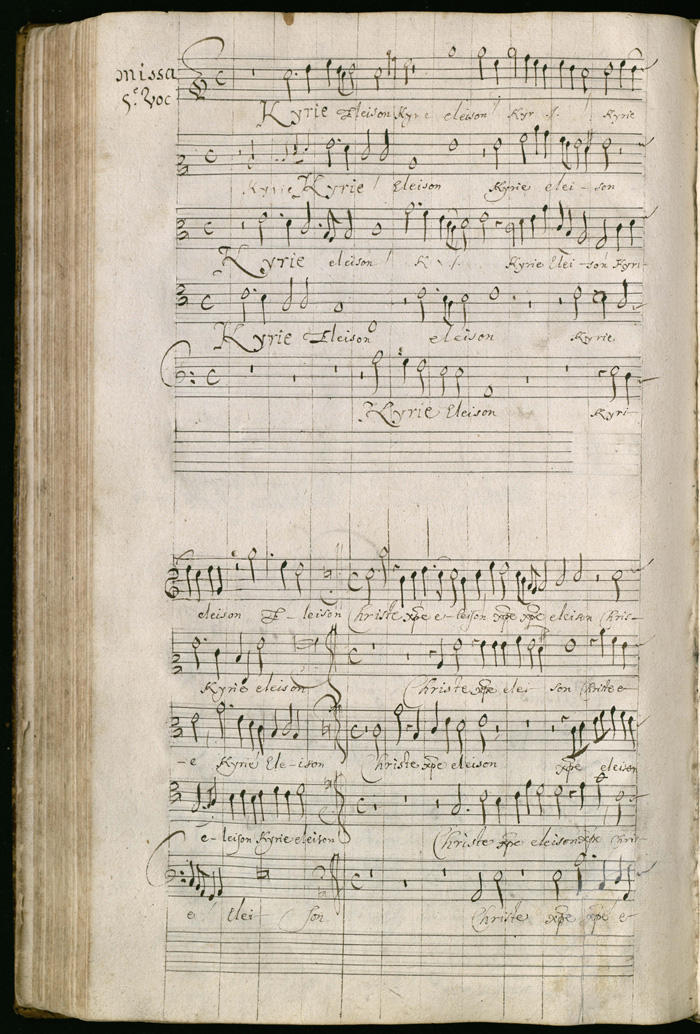 missa
5.e Voc
Kyrie Eleison Kyrie eleison Kyr Kyrie
Kyrie Kyrie Eleison Kyrie elei - son
Kyrie eleison Kyrie Elei - son Kyri-
Kyrie Eleison eleison Kyrie
Kyrie Eleison Kyri-
eleison E - leison Christe xpe e - leison xpe xpe eleison Chris-
Kyrie eleison Christe xpe elei son Christe e
- e Kyrie Ele - ison Christe xpe eleison xpe eleison
e - leison Kyrie eleison Christe xpe eleison xpe Chris-
e Elei son Christe xpe xpe e-